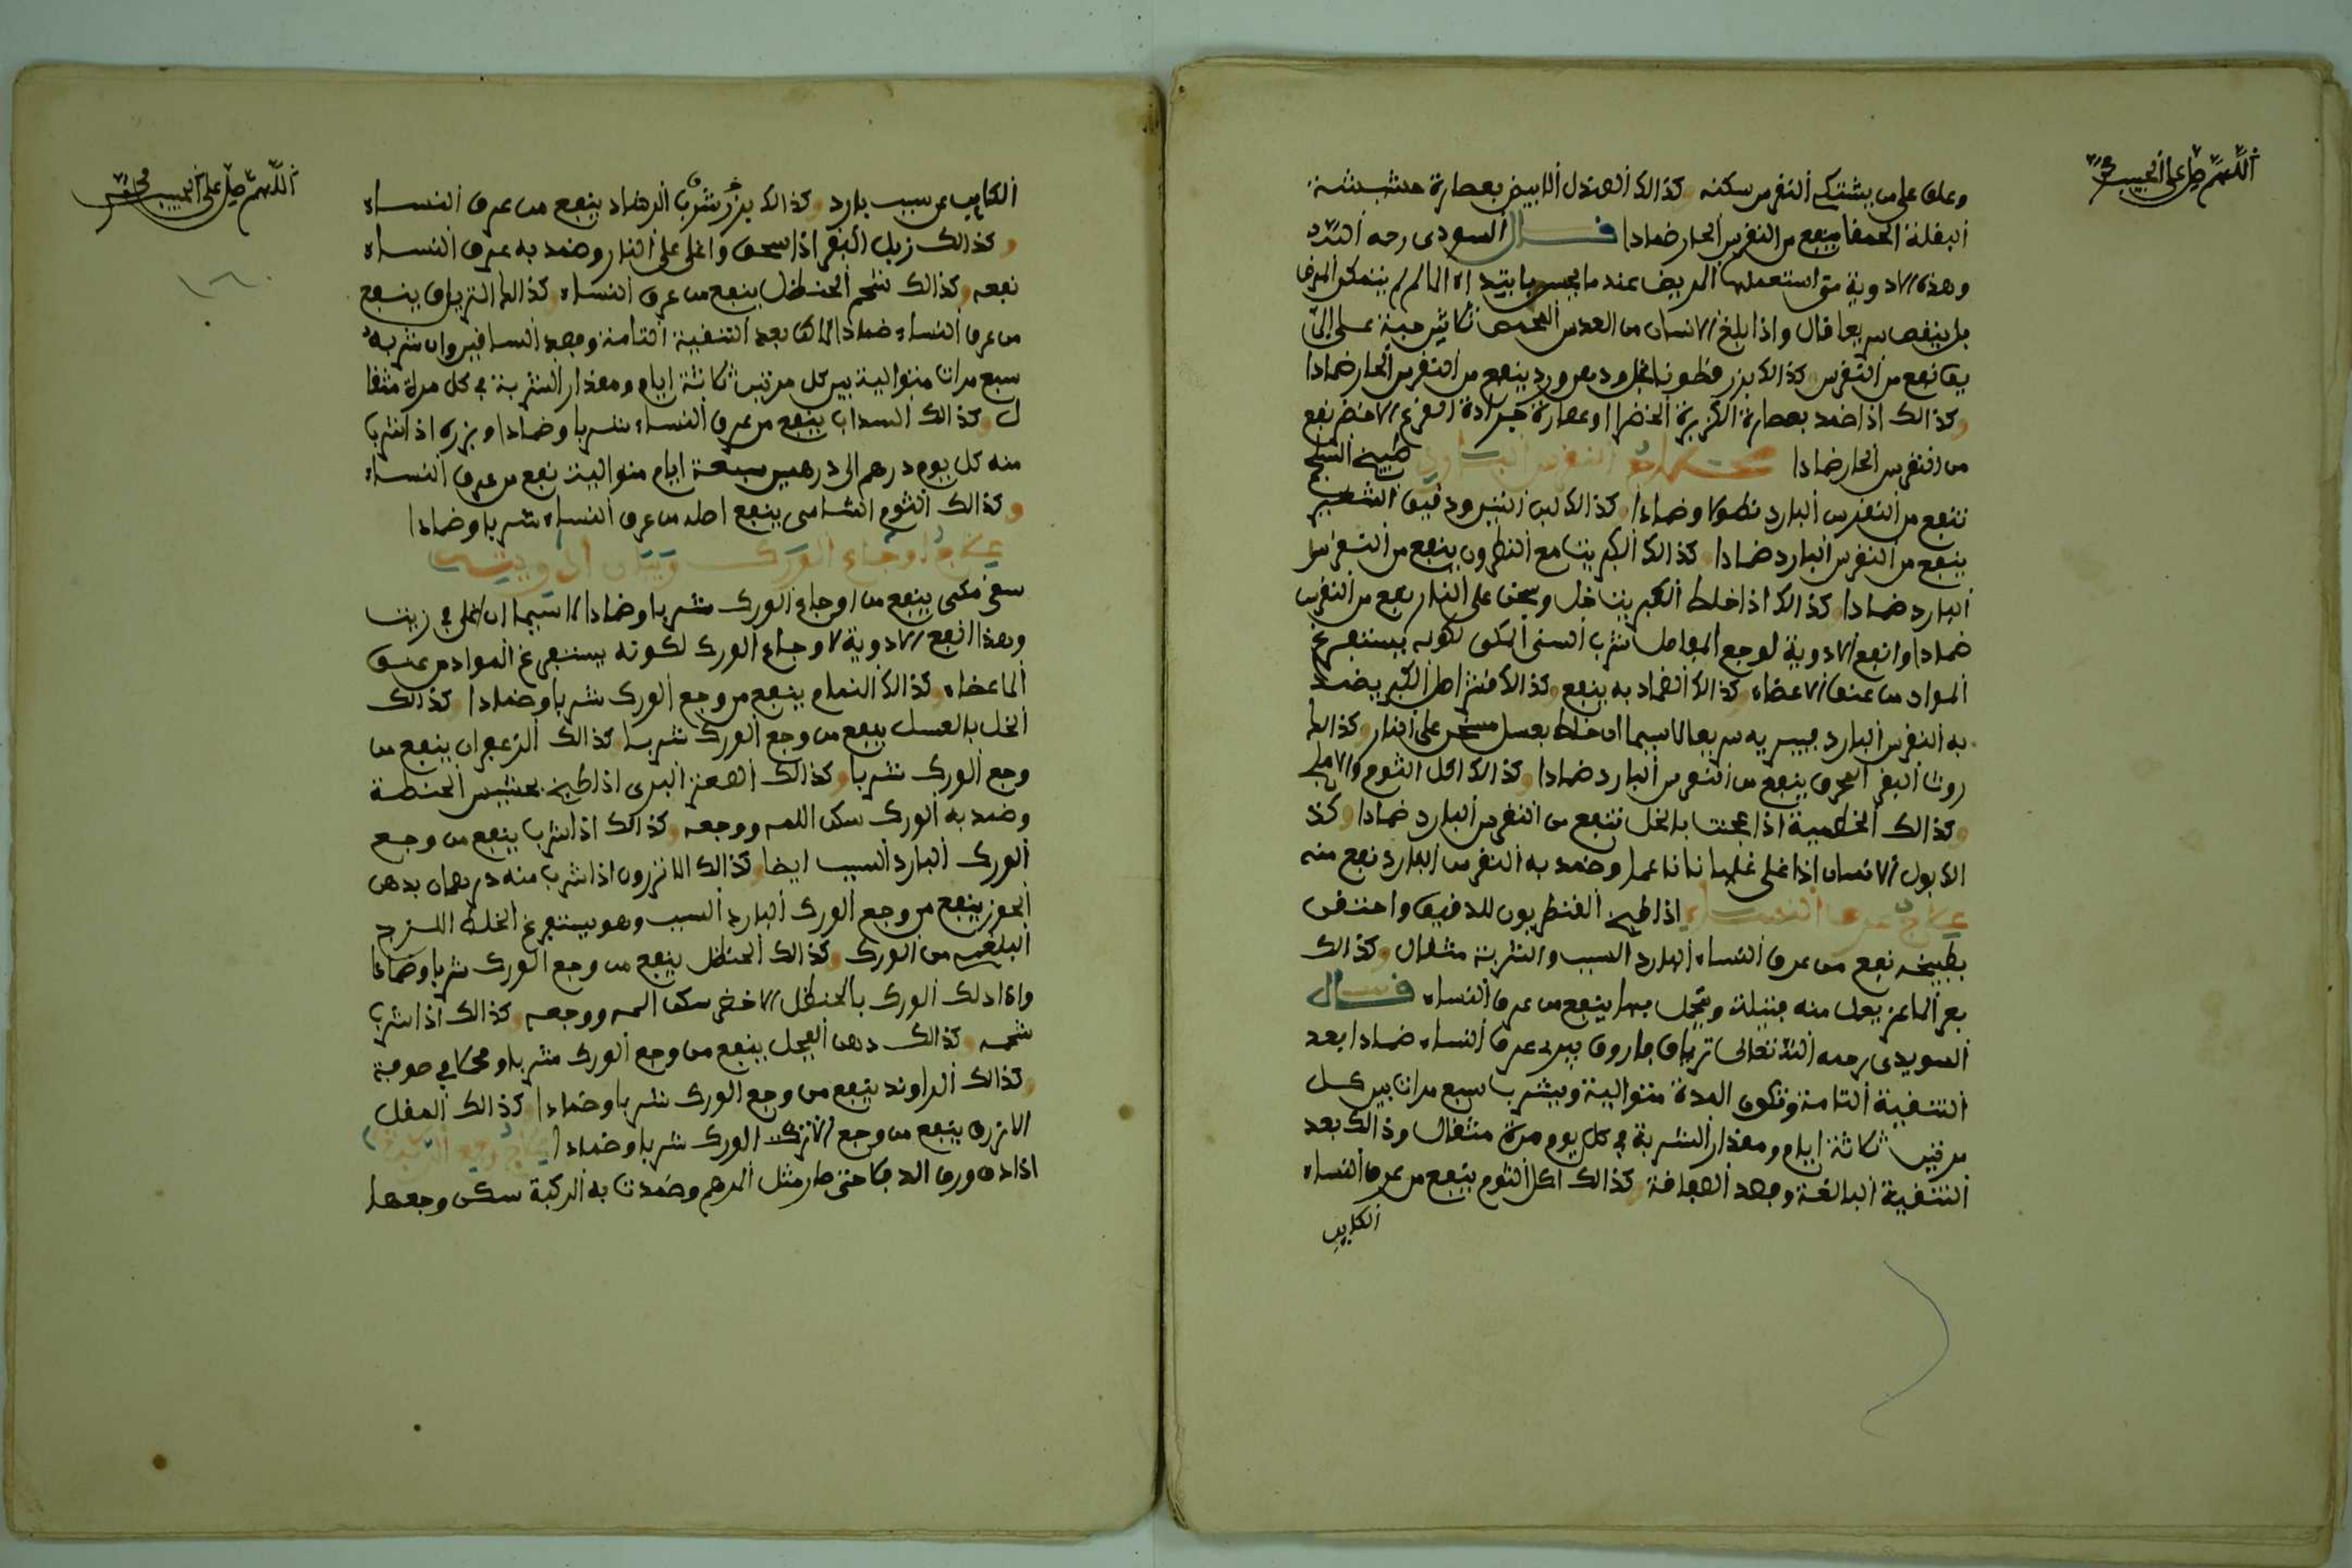 اللهم صل على الحبيب
وعلق على من يشتكي النقرس سكنه وكذالك الصندل الابيض بعصارة حشيشة
البقلة الحمقا ينفع من النقرس الحار ضمادا قال السودى رحه الله
وهذه الادوية متى استعملها المريض عندما يحس بابتداء الالم لم يتمكن المرض
بل ينقص سريعا قال واذا بلغ الانسان من العدس الصحيح ثلاثين حبة على الر
يق نفع من النقرس وكذالك بزر قطونا بخل ودهن ورد ينفع من النقرس الحار ضمادا
وكذالك اذا ضمد بعصارة الكزبرة الخضرا وعصارة جرادة القرع الاخضر نفع
من النقرس الحار ضمادا علاج النقرس البارد طبيخ الشلجم
تنفع من النقرس البارد نطولا وضمادا وكذالك لبن التين ودقيق الشعير
ينفع من النقرس البارد ضمادا وكذالك الكبريت مع النطرون ينفع من النقرس
البارد ضمادا وكذالك اذا خلط الكبريت بخل وسخن على النار نفع من النقرس
ضمادا وانفع الادوية لوجع المفاصل شرب السنى المكى لكونه يستفرغ
المواد من عمق الاعضاء وكذالك الضماد به ينفع وكذالك قشر اصل الكبر يضمد
به النقرس البارد فيبريه سريعا لاسيما ان خلط بعسل وسخن على النار وكذالك
روث البقر المحرق ينفع من النقرس البارد ضمادا وكذالك اكل الثوم والاملج
وكذالك الخطمية اذا عجنت بالخل تنفع من النقرس البارد ضمادا وكذ
الك بول الانسان اذا غلى غليانا ناعما وضمد به النقرس البارد نفع منه
علاج عرق النساء اذا طبخ القنطريون الدقيق واحتقن
بطبيخه نفع من عرق النساء البارد السبب والشربة مثقال وكذالك
بعر الماعز يعمل منه فتيلة ويتحمل بها ينفع من عرق النساء قال
السويدى رحمه الله تعالى ترياق فاروق يبرى عرق النساء ضمادا بعد
التنقية التامة وتكون المدة متوالية ويشرب سبع مرات بين كل
مرتين ثلاثة ايام ومقدار الشربة في كل يوم مرة مثقال وذالك بعد
التنقية البالغة وفصد الصافن وكذالك اكل الثوم ينفع من عرق النساء
الكاين
اللهم صل على الحبيب محمد
الكاين عن سبب بارد وكذالك بزر شرب الرشاد ينفع من عرق النساء
وكذالك زبل البقر اذا سحق واغلى على النار وضمد به عرق النساء
نفعه وكذالك شحم الحنظل ينفع من عرق النساء وكذالك الترياق ينفع
من عرق النساء ضمادا لاكن بعد التنقية التامة وفصد الساقين وان شربه
سبع مرات متوالية بين كل مرتين ثلاثة ايام ومقدار الشربة في كل مرة مثقا
ل وكذالك السداب ينفع من عرق النساء شربا وضمادا وبزره اذا شرب
منه كل يوم درهم الى درهمين سبعة ايام متوالية نفع من عرق النساء
وكذالك الثوم الشامى ينفع اصله من عرق النساء شربا وضمادا
علاج اوجاع الورك وبيان ادويته
سنى مكى ينفع من اوجاع الورك شربا وضمادا لاسيما ان غلى في زيت
وهذا انفع الادوية لاوجاع الورك لكونه يستفرغ المواد من عمق
الاعضاء وكذالك النمام ينفع من وجع الورك شربا وضمادا وكذالك
الخل بالعسل ينفع من وجع الورك شربا وكذالك الزعفران ينفع من
وجع الورك شربا وكذالك الصعتر البرى اذا طبخ بحشيش الحنطة
وضمد به الورك سكن المه ووجعه وكذالك اذا شرب ينفع من وجع
الورك البارد السبب ايضا وكذالك الانزروت اذا شرب منه درهمان بدهن
الجوز ينفع من وجع الورك البارد السبب وهو يستفرغ الخلط اللزج
البلغمى من الورك وكذالك الحنظل ينفع من وجع الورك شربا وضمادا
واذا دلك الورك بالحنظل الاخضر سكن المه ووجعه وكذالك اذا شرب
شحمه وكذالك دهن الفجل ينفع من وجع الورك شربا ومحكا في صوفة
وكذالك الراوند ينفع من وجع الورك شربا وضمادا وكذالك المقل
الازرق ينفع من وجع الورك شربا وضمادا علاج وجع الركبة
اذا دق ورق الدفلا حتى صار مثل المرهم وضمدت به الركبة سكن وجعها